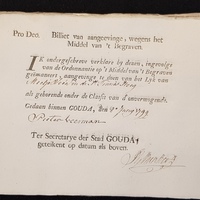 Pro Deo. Billiet van aangeevinge, wegens het
Middel van 't Begraven.
IK ondergeschreve verklaare by deezen, ingevolge
van de Ordonnantie op 't Middel van 't Begraven
geëmaneert, aangevinge te doen van het Lyk van
als gehoorende onder de Classis van d'onvermogende.
Gedaan binnen GOUDA, den
Pieter
Ter Secretarye der Stad GOUDA
geteikent op datum als boven.